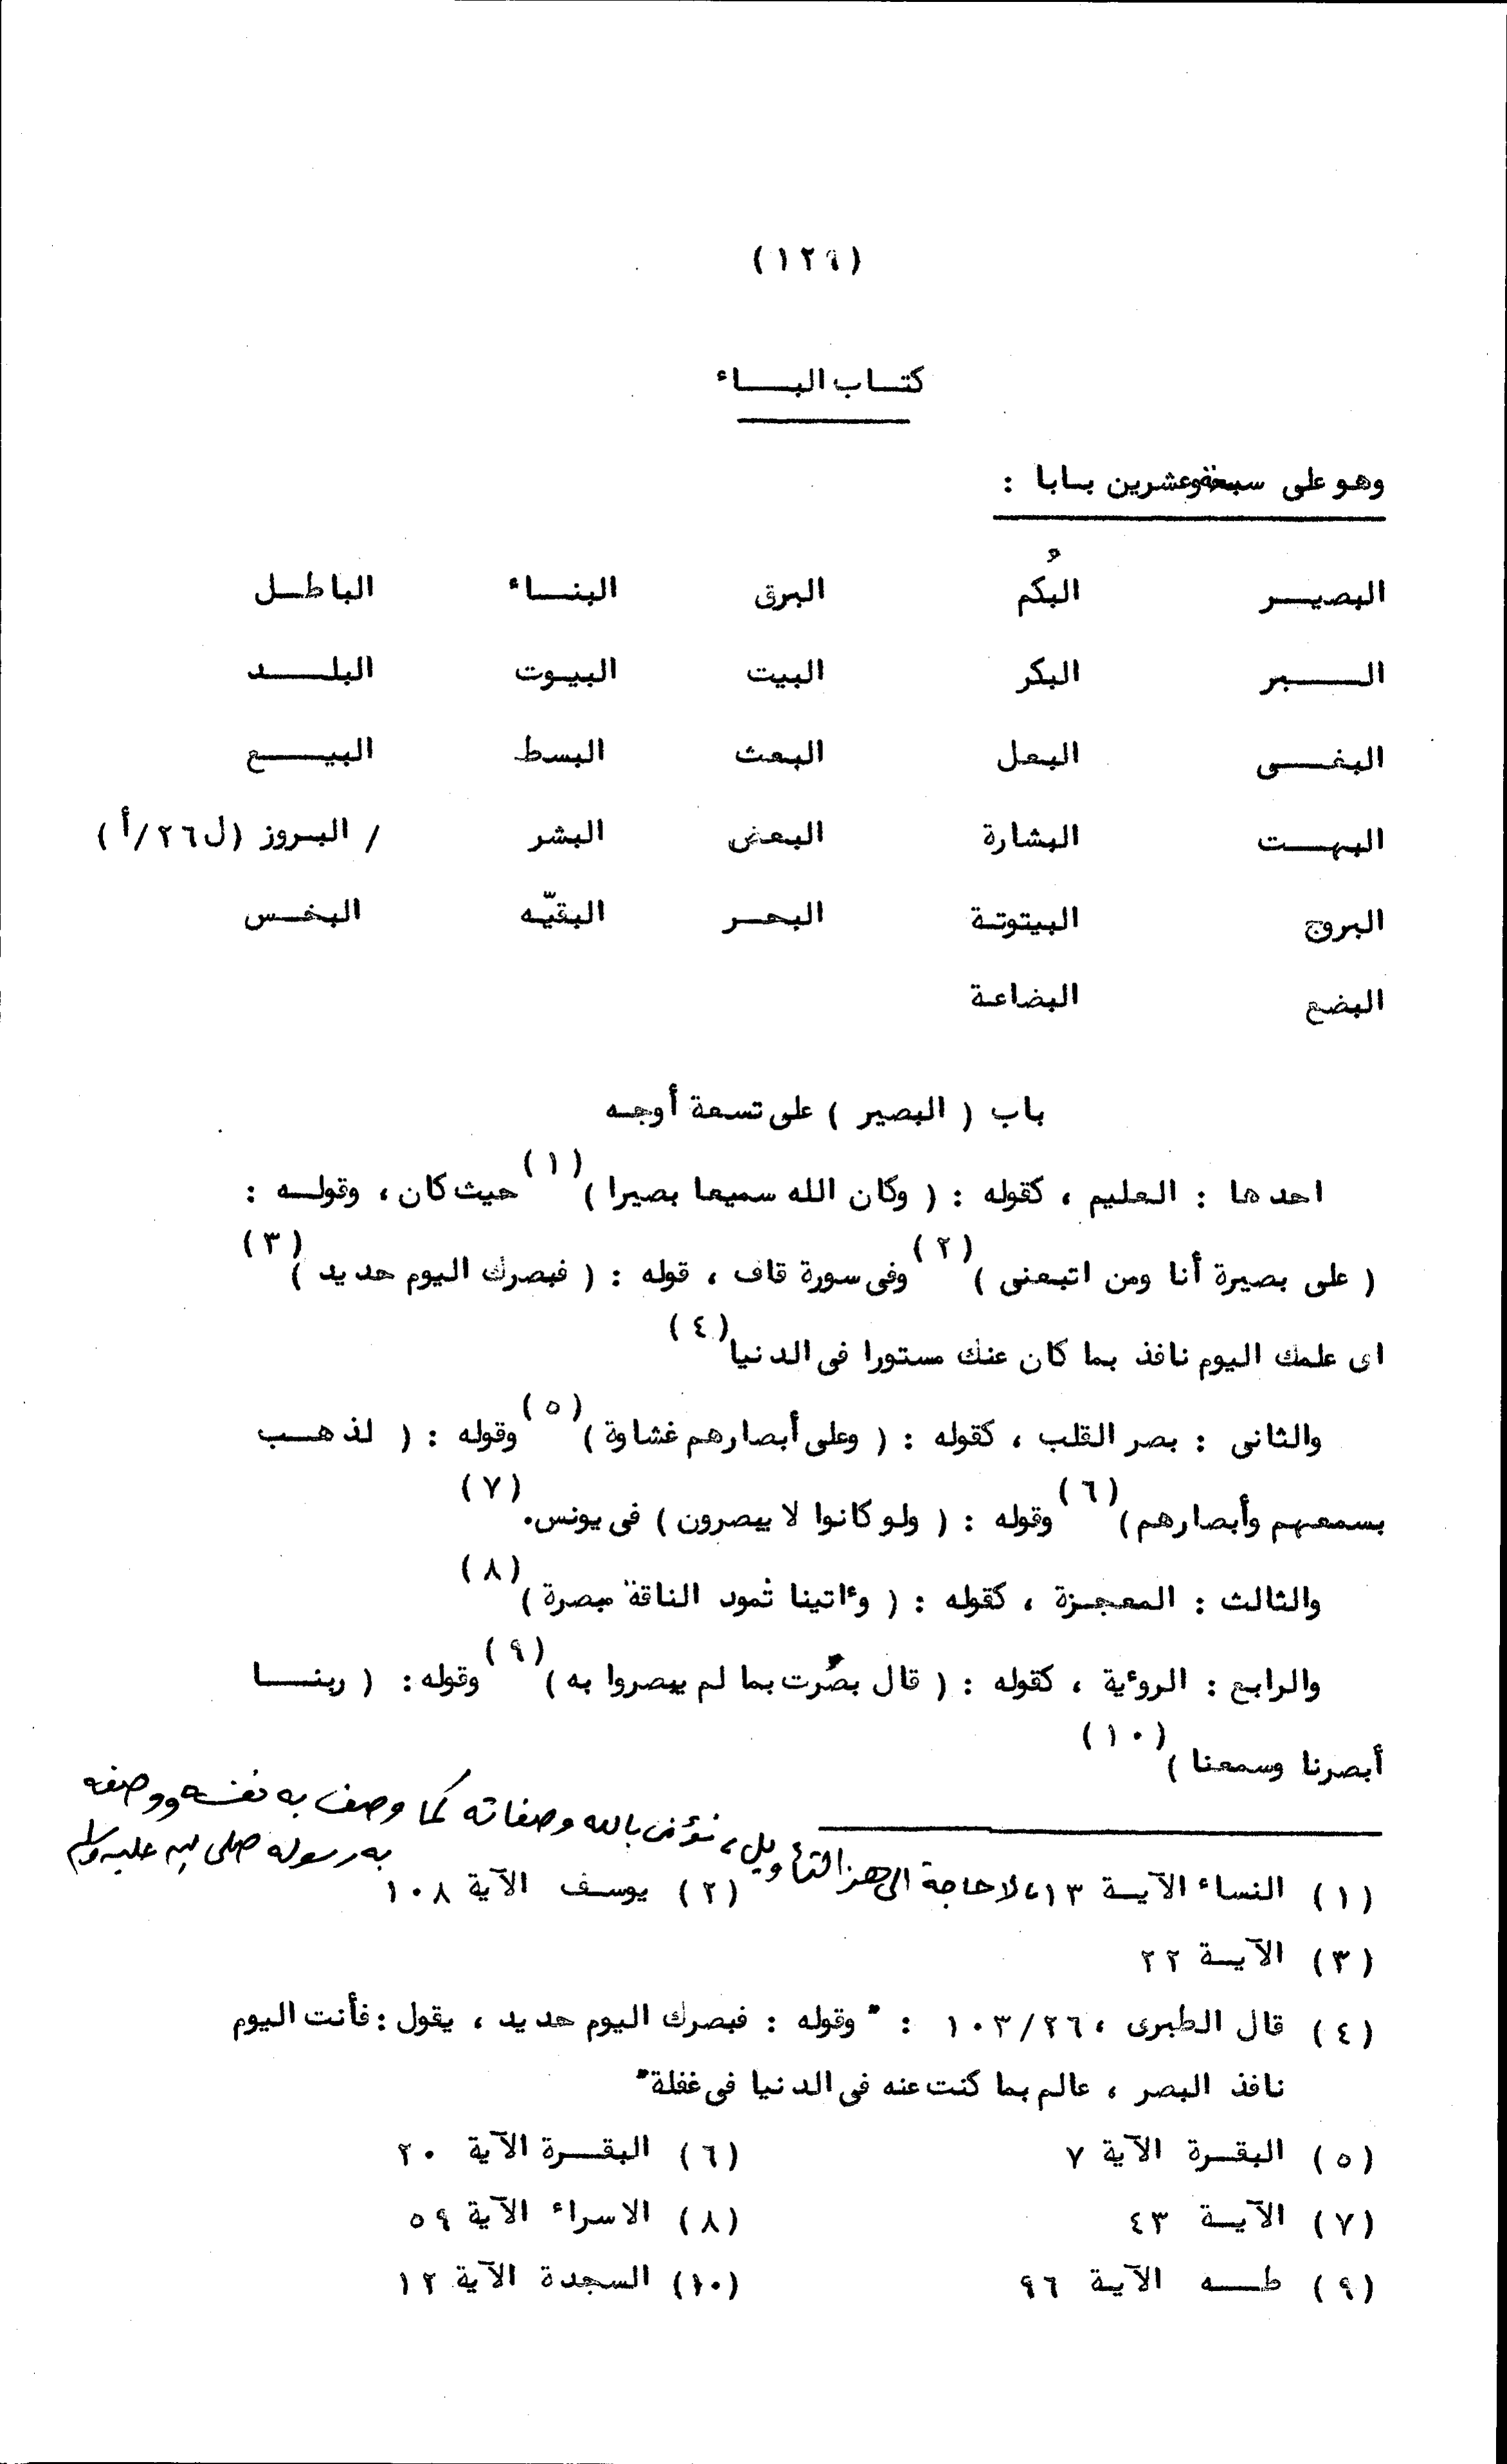 (١٢٦)
كتاب الباء
وهو على سبعة وعشرين بابا :
البصير البُكم البرق البناء الباطل
البر البكر البيت البيوت البلد
البغى البعل البعث البسط البيع
البهت البشارة البعض البشر / البروز (ل٢٦/أ)
البروج البيتوتة البحر البقيّه البخس
البضع البضاعة
باب ( البصير ) على تسعة أوجه
احدها : العليم ، كقوله : ( وكان الله سميعا بصيرا )(١) حيث كان ، وقوله :
( على بصيرة أنا ومن اتبعنى )(٢) وفى سورة قاف ، قوله : ( فبصرك اليوم حديد )(٣)
اى علمك اليوم نافذ بما كان عنك مستورا فى الدنيا(٤)
والثانى : بصر القلب ، كقوله : ( وعلى أبصارهم غشاوة )(٥) وقوله : ( لذهب
بسمعهم وأبصارهم )(٦) وقوله : ( ولو كانوا لا يبصرون ) فى يونس.(٧)
والثالث : المعجزة ، كقوله : ( وءاتينا ثمود الناقة مبصرة )(٨)
والرابع : الروءية ، كقوله : ( قال بصُرت بما لم يبصروا به )(٩) وقوله : ( ربنا
أبصرنا وسمعنا )(١٠)
(١) النساء الآية ١٣٤ لا حاجة الى هذا التأويل، نؤمن بالله وصفاته كما وصف به نفسه ووصفه
به رسوله صلى الله عليه وسلم
(٢) يوسف الآية ١٠٨
(٣) الآية ٢٢
(٤) قال الطبرى ، ١٠٣/٢٦ : " وقوله : فبصرك اليوم حديد ، يقول : فأنت اليوم
نافذ البصر ، عالم بما كنت عنه فى الدنيا فى غفلة"
(٥) البقرة الآية ٧ (٦) البقرة الآية ٢٠
(٧) الآية ٤٣ (٨) الاسراء الآية ٥٩
(٩) طه الآية ٩٦ (١٠) السجدة الآية ١٢